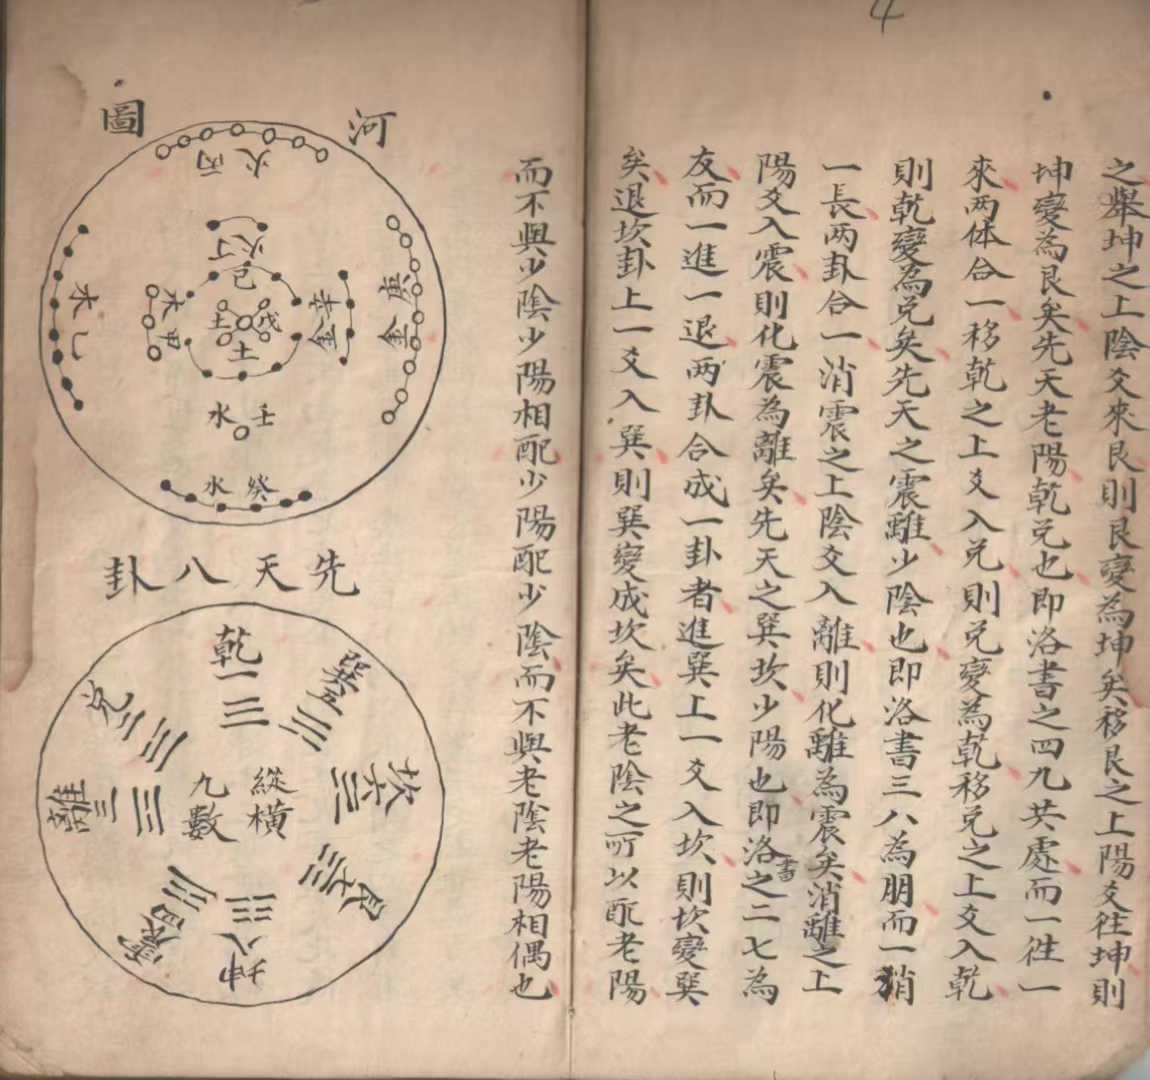 4
之舉坤之上陰爻來艮則艮變為坤矣移艮之上陽爻往坤則
坤變為艮矣先天老陽乾兌也即洛書之四九共處而一往一
來两体合一移乾之上爻入兌則兌變為乾移兌之上爻入乾
則乾變為兌矣先天之震離少陰也即洛書三八為朋而一消
一長两卦合一消震之上陰爻入離則化離為震矣消離之上
陽爻入震則化震為離矣先天之巽坎少陽也即洛書之二七為
友而一進一退两卦合成一卦者進巽上一爻入坎則坎變巽
矣退坎卦上一爻入巽則巽變成坎矣此老陰之所以配老陽
而不與少陰少陽相配少陽配少陰而不與老陰老陽相偶也
河圖
火丙
火丁
庚金
辛金
己
戊
土
土
木甲
木乙
水壬
水癸
先天八卦
乾一
兌二
離三
震四
巽五
坎六
艮七
坤八
縱橫
九數